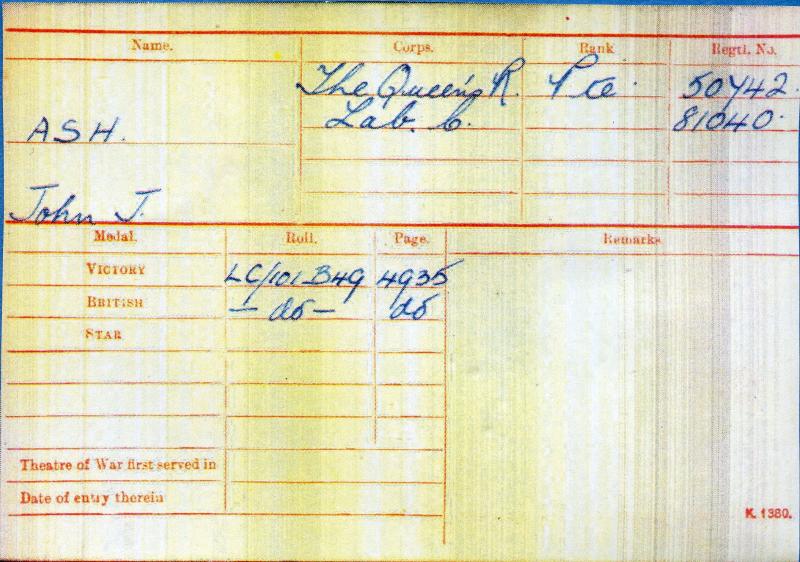 Name. Corps. Rank Regtl. No.
The Queen's R. Pte. 50742.
ASH. Lab. C. 81040.
John J.
Medal. Roll. Page. Remarks
VICTORY LC/101 B49 4935
BRITISH — do — do
STAR
Theatre of War first served in
Date of entry therein
K. 1380.